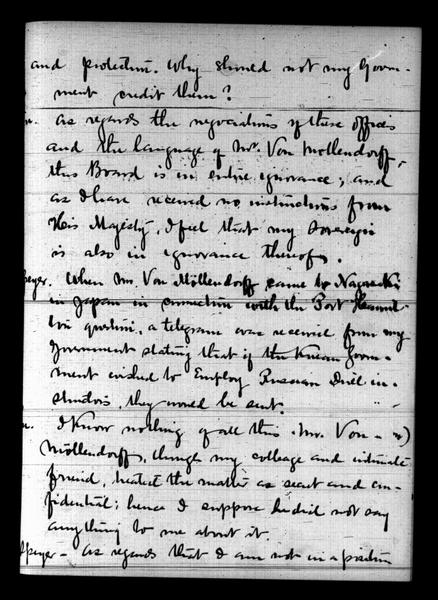 and protection. Why should not my Govern-
ment credit them?
n. As regards the negociations of these officers
and the language of Mr. Von Mollendorff,
this Board is in entire ignorance; and
as I have received no instructions from
His Majesty, I feel that my Sovereign
is also in ignorance thereof.
peyer. When Mr. Von Möllendorff came to Nagasaki
in Japan in connection with the Port Hamil-
ton question, a telegram was received from my
Government stating that if the Korean Govern-
ment wished to Employ Russian Drill in-
structors, they would be sent.
n. I know nothing of all this. Mr. Von -
Möllendorff, though my colleage and intimate
friend, treated the matter as secret and con-
fidential; hence I suppose he did not say
anything to me about it.
Speyer - As regards that I am not in a position